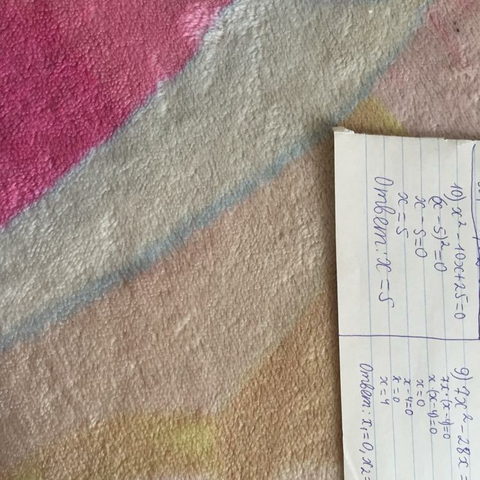 10) x² - 10x + 25 = 0
(x - 5)² = 0
x - 5 = 0
x = 5
Ответ: x = 5
9) 7x² - 28x =
7x · (x - 4) = 0
x · (x - 4) = 0
x = 0
x - 4 = 0
x = 0
x = 4
Ответ: x₁ = 0, x₂ =